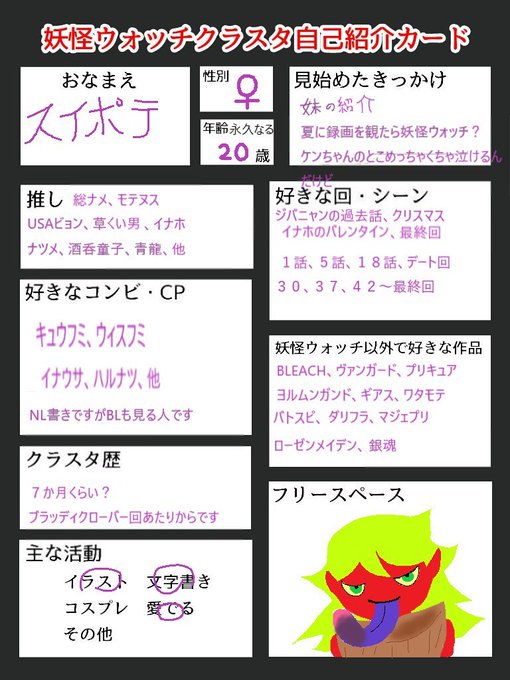 妖怪ウォッチクラスタ自己紹介カード
おなまえ
スイポテ
性別
♀
年齢永久なる
20歳
見始めたきっかけ
妹の紹介
夏に録画を観たら妖怪ウォッチ？
ケンちゃんのとこめっちゃくちゃ泣けるん
だけど
推し 総ナメ、モテヌス
USAピョン、草くい男、イナホ
ナツメ、酒呑童子、青龍、他
好きな回・シーン
ジバニャンの過去話、クリスマス
イナホのバレンタイン、最終回
１話、５話、１８話、デート回
３０、３７、４２～最終回
好きなコンビ・CP
キュウフミ、ウィスフミ
イナウサ、ハルナツ、他
NL書きですがBLも見る人です
妖怪ウォッチ以外で好きな作品
BLEACH、ヴァンガード、プリキュア
ヨルムンガンド、ギアス、ワタモテ
バトスピ、ダリフラ、マジェプリ
ローゼンメイデン、銀魂
クラスタ歴
７か月くらい？
ブラッディクローバー回あたりからです
主な活動
イラスト 文字書き
コスプレ 愛でる
その他
フリースペース